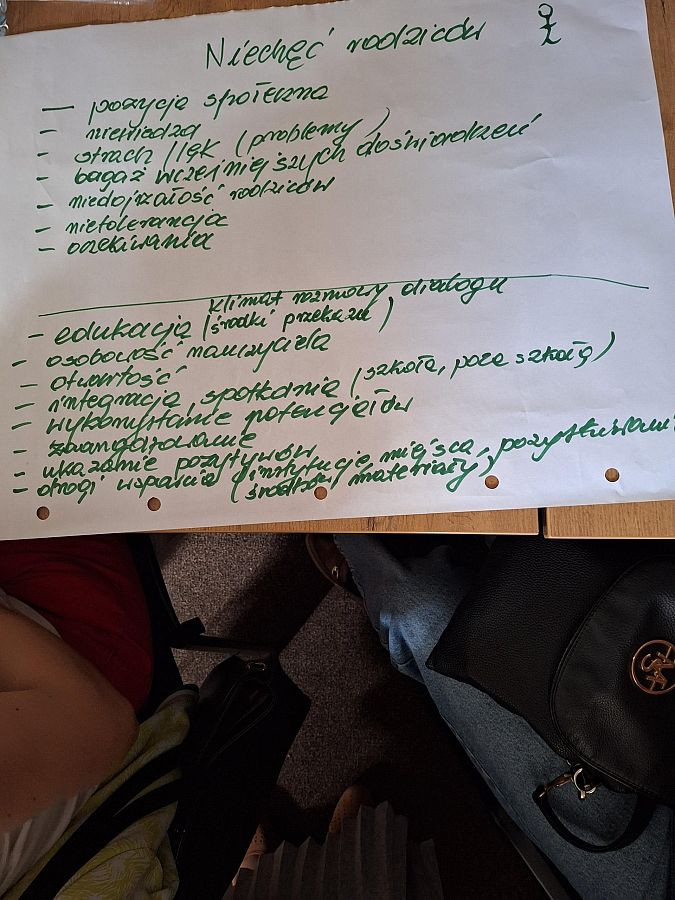 Niechęć rodziców
— pozycja społeczna
- niewiedza
- strach / lęk (problemy)
- bagaż wcześniejszych doświadczeń
- niedojrzałość rodziców
- nietolerancja
- oczekiwania
klimat rozmowy, dialogu
- edukacja (środki przekazu)
- osobowość nauczyciela
- otwartość
- integracja, spotkania (szkoła, poza szkołą)
- wykorzystanie potencjałów
- zaangażowanie
- ukazanie pozytywów
- drogi wsparcia (instytucje, miejsca, pozyskiwanie
środków, materiały)